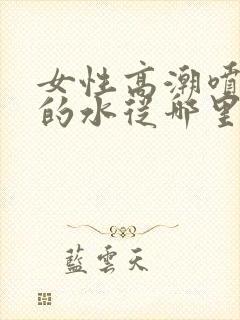 女性高潮喷
的水从哪里
蓝云天